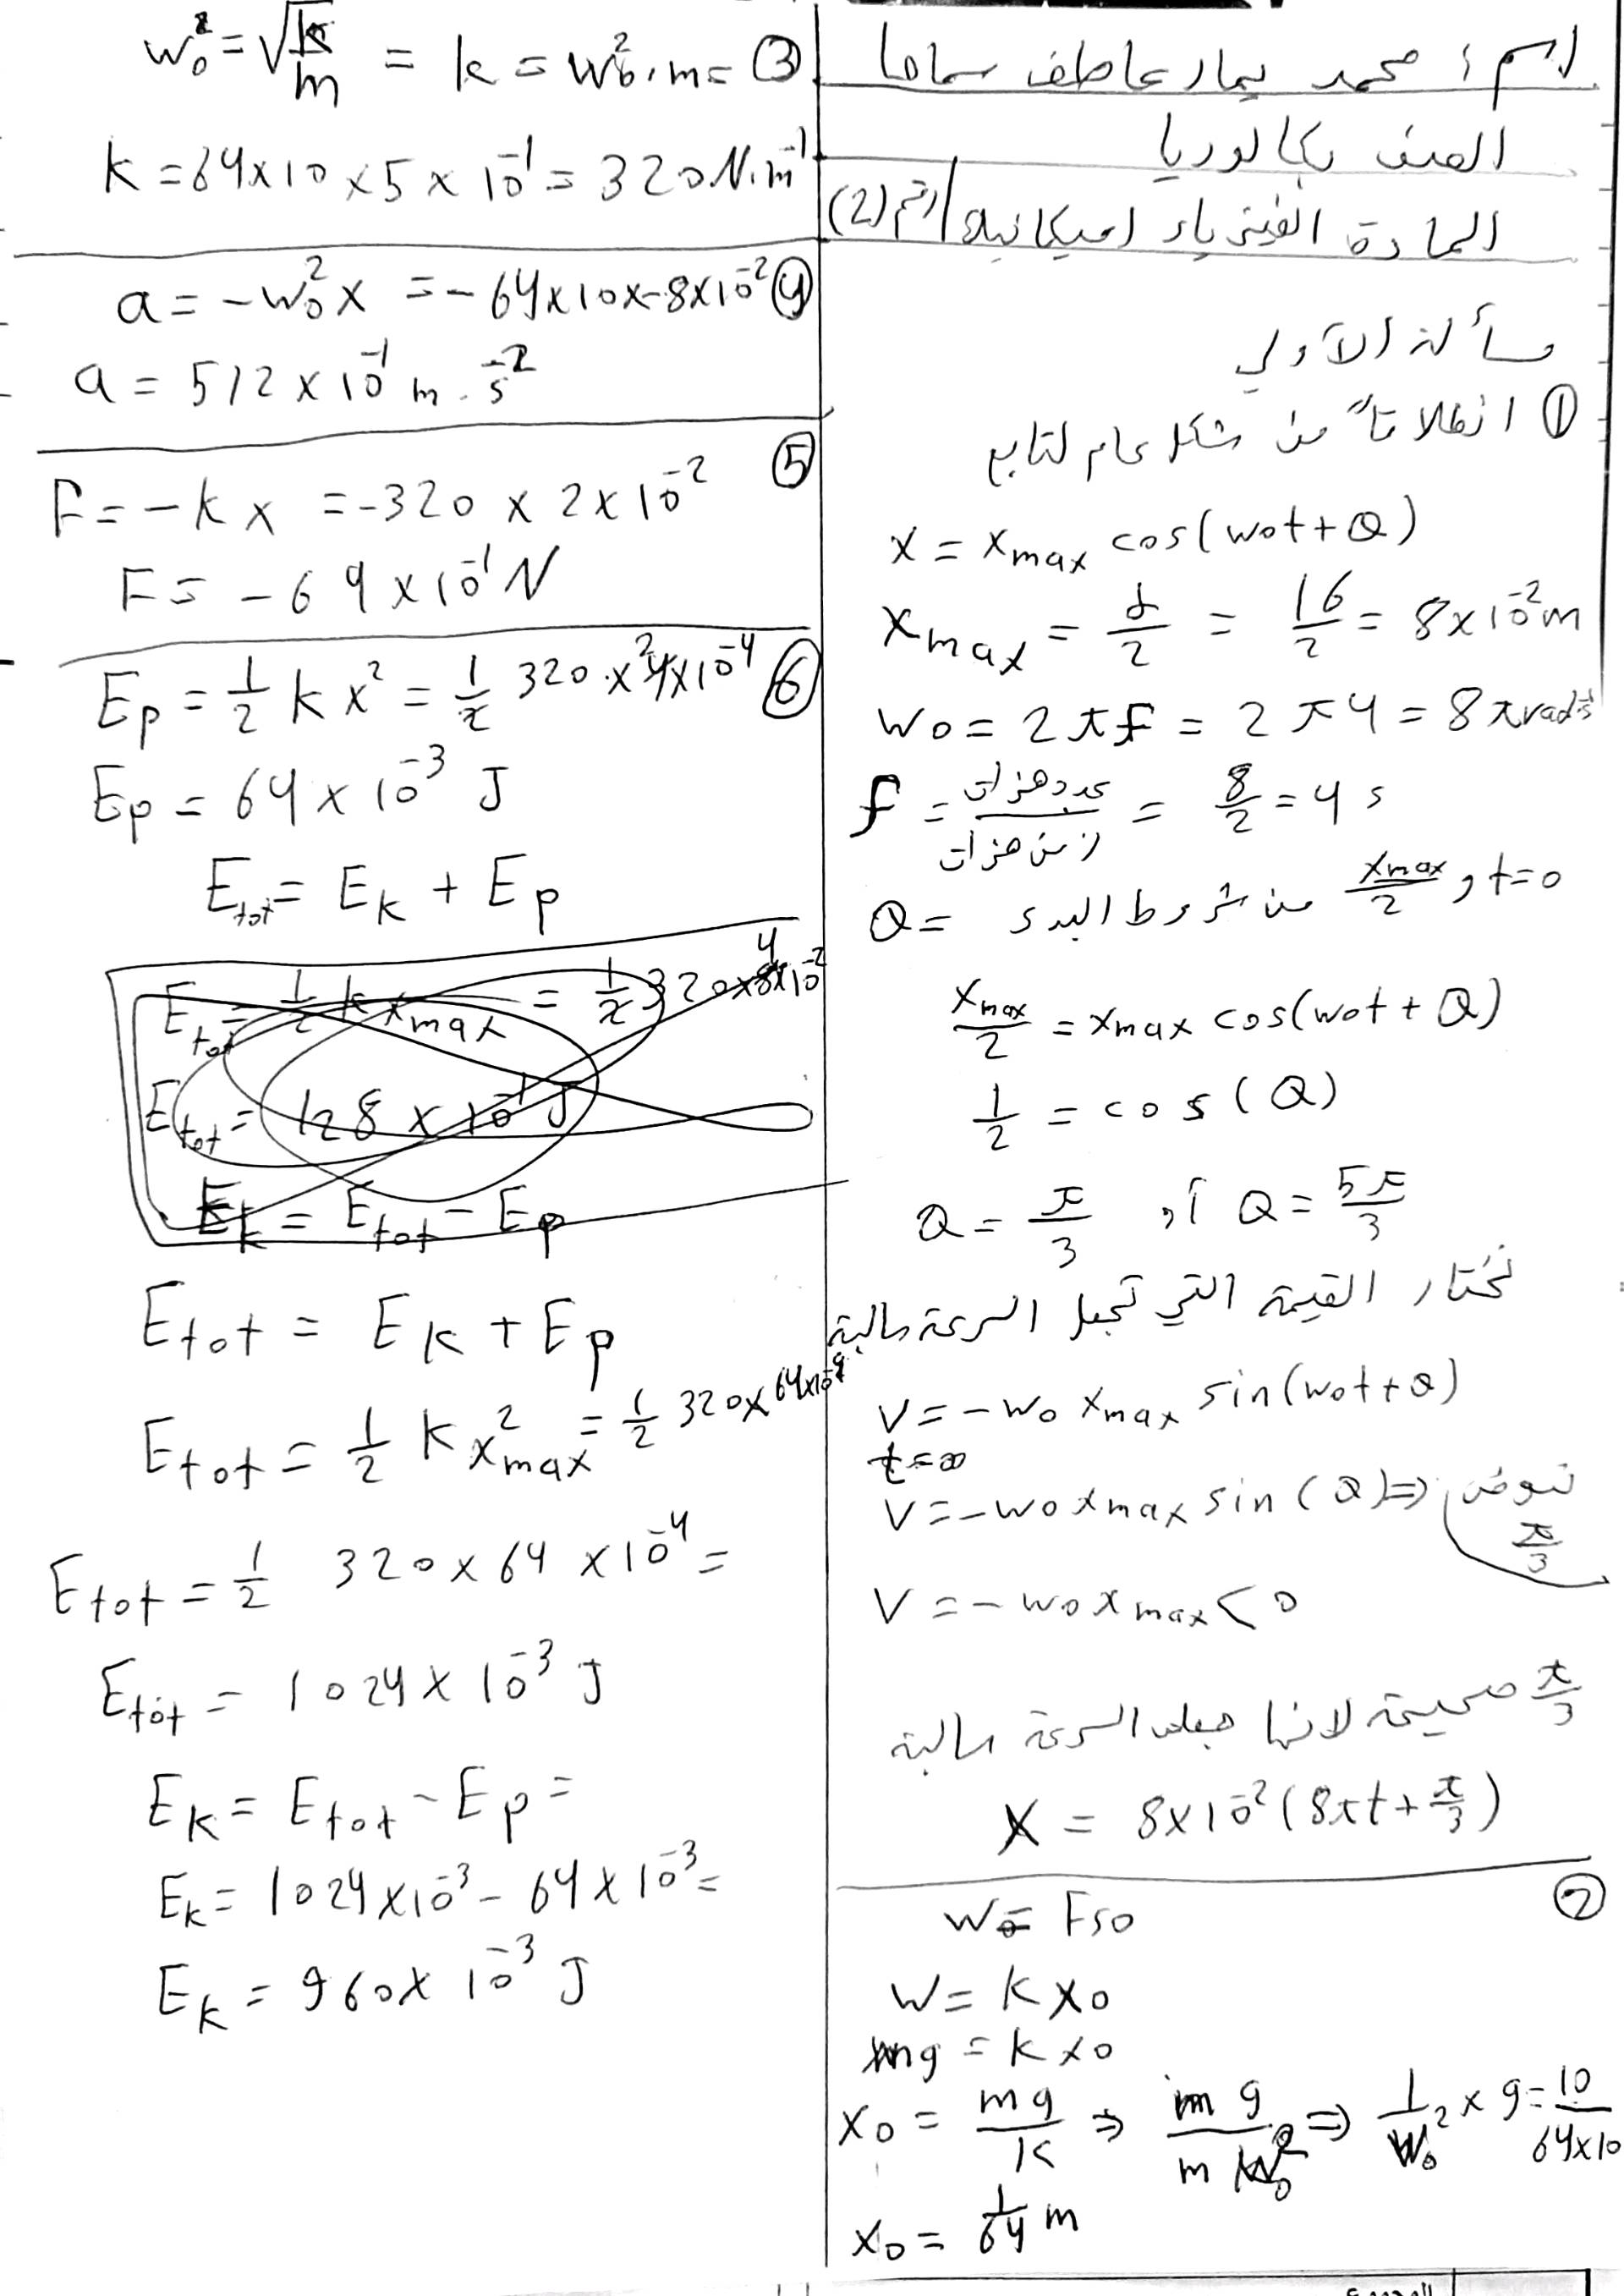 اسم : محمد يمار عاطف سماحا
الصف بكالوريا
المادة الفيزياء اميكانيك / رقم (2)
مسألة الآولى
① انطلاقاً من شكل عام لتابع
x = xmax cos(wot+Q)
xmax = d/2 = 16/2 = 8x10⁻²m
wo = 2πf = 2π4 = 8π rad s⁻¹
f = عدد هزات / زمن هزات = 8/2 = 4 s
Q = من شروط البدء xmax/2 , t=0
xmax/2 = xmax cos(wot + Q)
1/2 = cos(Q)
Q = π/3 أو Q = 5π/3
نختار القيمة التي تجعل السرعة سالبة
v = -wo xmax sin(wot+Q)
t=0
v = -wo xmax sin(Q) ⇒ نعوض π/3
v = -wo xmax < 0
π/3 صحيحة لانها جعلت السرعة سالبة
X = 8x10⁻²(8πt+π/3)
②
W = Fso
W = k xo
mg = k xo
xo = mg/k ⇒ mg/mwo² ⇒ 1/wo² x g = 10/64x10
xo = 1/64 m
wo² = √k/m = k = wo².m = ③
k = 64x10 x5 x 10⁻¹ = 320 N.m⁻¹
a = -wo²x = -64x10x-8x10⁻² ④
a = 512 x 10⁻¹ m.s⁻²
⑤
F = -kx = -320 x 2x10⁻²
F = -64x10⁻¹N
Ep = 1/2 k x² = 1/2 320 x 4x10⁻⁴ ⑥
Ep = 64 x 10⁻³ J
Etot = Ek + Ep
Etot = 1/2 k xmax = 1/2 320x8x10⁻²
Etot = 128 x 10⁻¹ J
Ek = Etot - Ep
Etot = Ek + Ep
Etot = 1/2 k xmax² = 1/2 320x64x10⁻⁴
Etot = 1/2 320 x 64 x10⁻⁴ =
Etot = 1024 x 10⁻³ J
Ek = Etot - Ep =
Ek = 1024x10⁻³ - 64x10⁻³ =
Ek = 960x 10⁻³ J